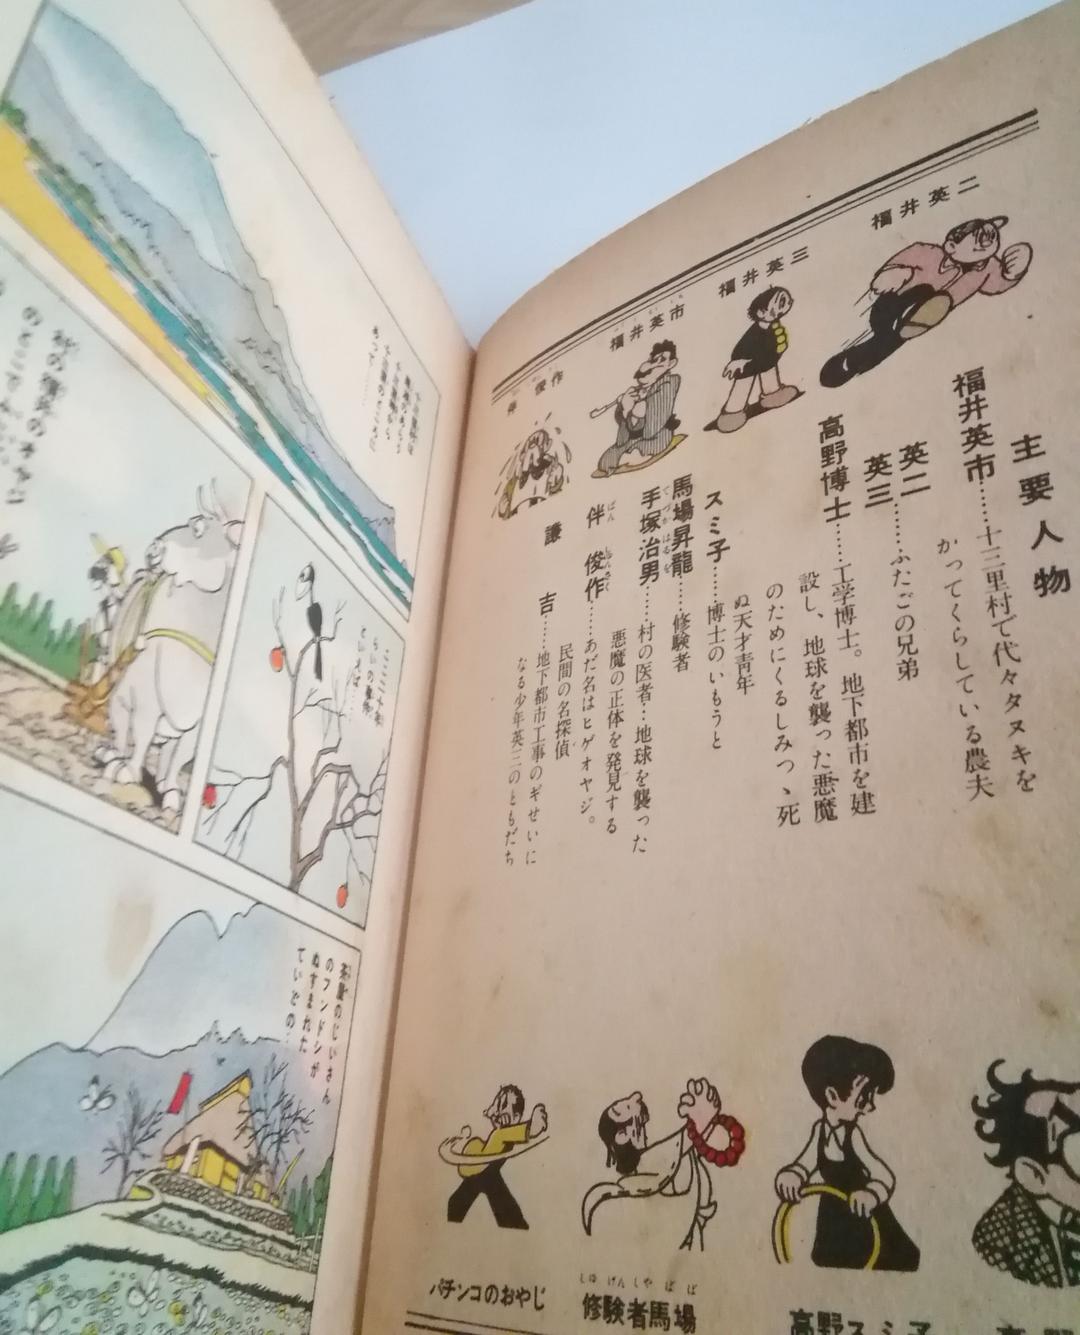 福井英二
福井英三
福井英市
伴俊作
主要人物
福井英市……十三里村で代々タヌキを
かってくらしている農夫
英二
英三……ふたごの兄弟
高野博士……工学博士。地下都市を建
設し、地球を襲った悪魔
のためにくるしみつゝ死
ぬ天才青年
スミ子……博士のいもうと
馬場昇龍……修験者
手塚治男……村の医者…地球を襲った
てづかはるを
悪魔の正体を発見する
伴俊作……あだ名はヒゲオヤジ。
ばんしゅんさく
民間の名探偵
謙吉……地下都市工事のギせいに
なる少年英三のともだち
高野スミ子
修験者馬場
しゅげんしゃばば
パチンコのおやじ
十三里村は
もって……
ここ二十年
らいの事件
といえば……
茶屋のじいさん
のフンドシが
ぬすまれた
ていどの…